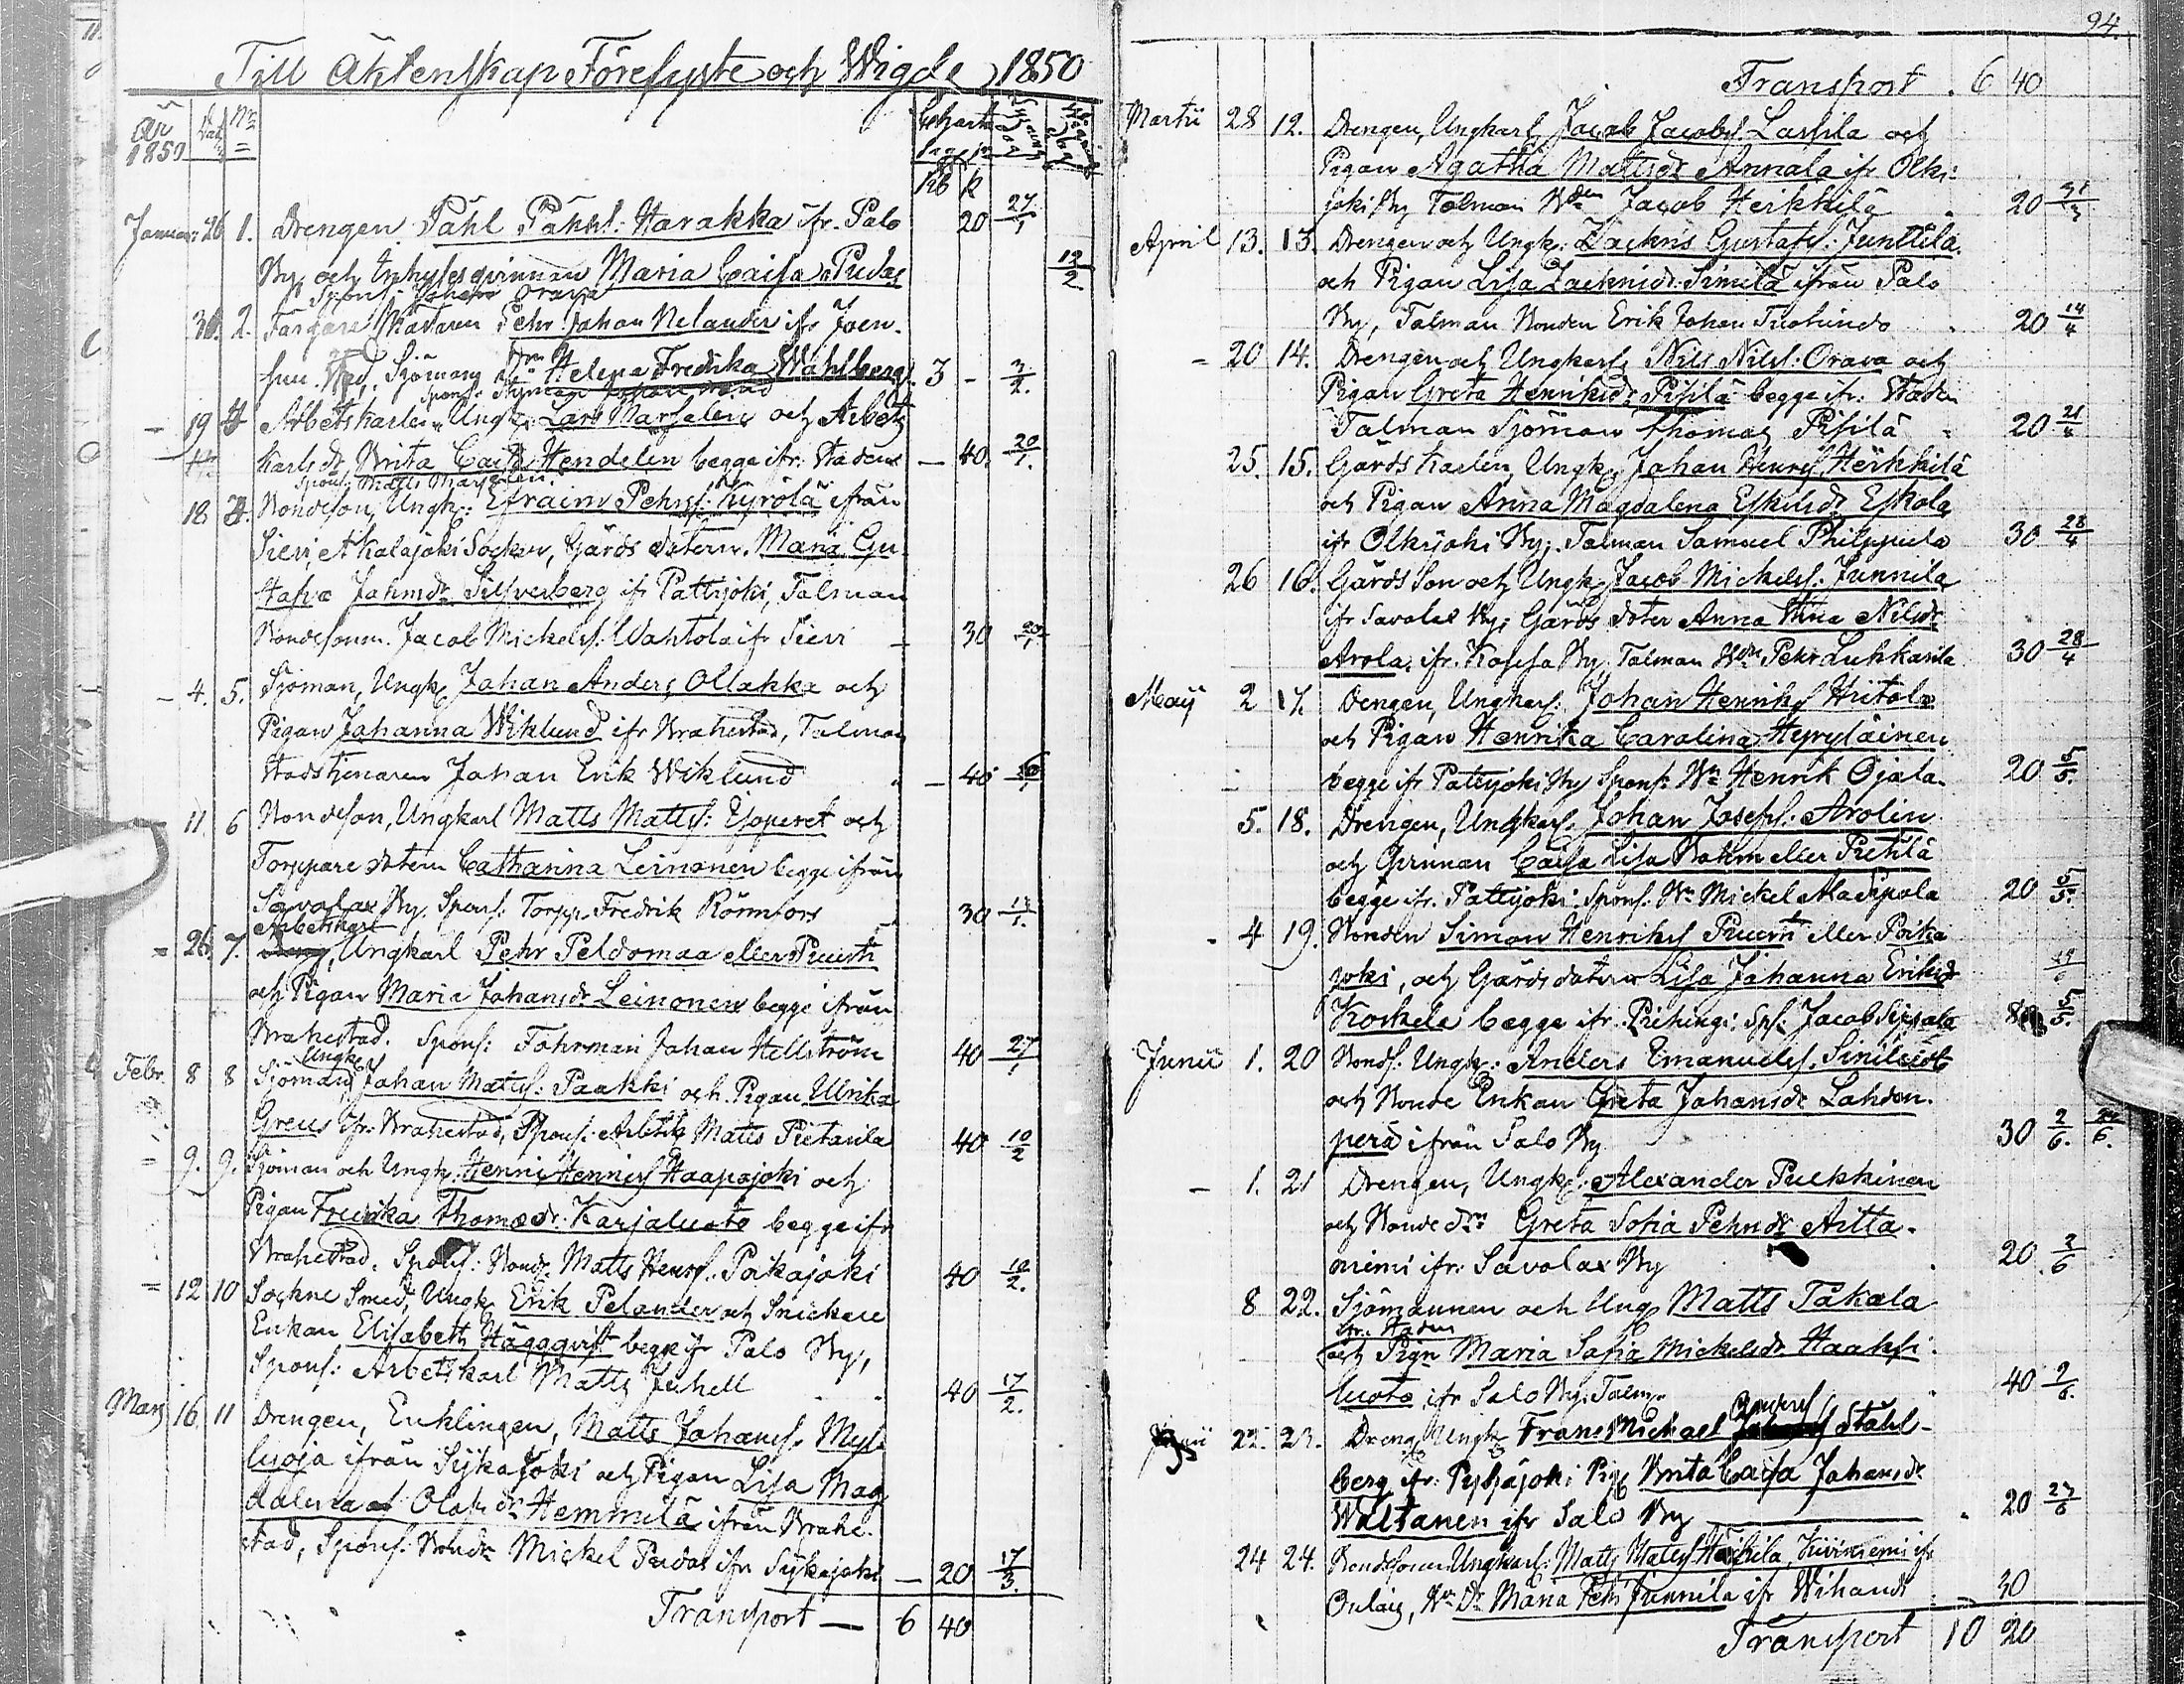 Till Äktenskap Förelyste och Wigde, 1850
År 1850 Dat. No
Rb K
Januar: 26 1. Drengen Påhl Påhls: Harakka ifr. Palo 20 27/1
By och Inhyses qvinnan Maria Caisa Pudas 12/2
Spons. Johan Orava
30. 2. Färgare Mästaren Pehr Johan Nelander ifr Joen-
suu. Sjömans dtr Helena Fredrika Wahlberg 3 - 3/2.
Spons. Styrman Johan
- 19 Arbetskarlen Ungk: Lars Marjelen och Arbets
karls dr Brita Caisa Hendelin begge ifr: Staden - 40. 20/1.
Spons Matts Marjelen.
18 Bondeson, Ungk: Efraim Pehrs: Kyrölä ifrån
Sievi, Kalajoki Socken, Gårds dotern. Maria Gu-
stafva Johansdr Silfverberg ifr Pattijoki, Talman
Bondesonen. Jacob Mickels: Wahtola ifr Sievi - 30
- 4. 5. Sjöman, Ungk. Johan Anders: Ollakka och
Pigan Johanna Wiklund ifr Brahestad, Talman
Stadstjenaren Johan Erik Wiklund - 40
11. 6 Bondeson, Ungkarl Matts Matts: Esoperet och
Torppare dotern Catharina Leinonen begge ifrån
Savolax By. Spons: Torpp. Fredrik Rönnfors 30 13/1.
Arbetskarl
= 26 7. Ungkarl Pehr Peldomaa eller Puusti
och Pigan Maria Johansdr Leinonen begge ifrån
Brahestad. Spons: Fohrman Johan Hellström 40 27/1
Ungk
Febr. 8 8 Sjöman, Johan Matts: Paakki och Pigan Ulrika
Greus ifr. Brahestad, Spons. Arbetsk Matts Pietarila 40 10/2
= 9. 9. Sjöman och Ungk. Henric Henrics Haapajoki och
Pigan Fredrika Thomædr. Karjaluoto begge ifr
Brahestad. Spons: Bond: Matts Henrs: Poikajoki 40 10/2.
= 12 10 Sockne Smed, Ungk Erik Pelander och Snickare
Enkan Elisabeth Häggqvist begge ifr Palo By,
Spons: Arbetskarl Matts Juhell 40 17/2.
Mars 16 11 Drengen, Enklingen, Matts Johans. Myl-
luoja ifrån Sijkajoki och Pigan Lisa Mag-
dalena Olofs dr Hemmilä ifrån Brahe-
stad, Spons. Bond: Mickel Pudas ifr Sijkajoki - 20 17/3.
Transport - 6 40
94.
Transport . 6 40
Martii 28 12. Drengen, Ungkarl, Jacob Jacobs. Lassila och
Pigan Agatha Mattsdr Annala ifr Olki-
joki By Talman Bden Jacob Heikkilä 20 31/3
April 13. 13. Drengen och Ungk: Zachris Gustafs: Junttila
och Pigan Lisa Zachrisdr. Similä ifrån Palo
By, Talman Bonden Erik Johan Tuohindo 20 14/4
- 20 14. Drengen och Ungkarl, Nils Nils: Orava och
Pigan Greta Henriksdr Pisilä begge ifr: Staden
Talman Sjöman Thomas Pisilä 20 21/4
25. 15. Gårds Karlen, Ungk. Johan Henrs: Heikkilä
och Pigan Anna Magdalena Eskilsdr Eskola
ifr Olkijoki By. Talman Samuel Philppula 30 28/4
26 16. Gårds Son och Ungk. Jacob Mickels: Junnila
ifr Savolax By; Gårds doter Anna Stina Nilsdr
Arola, ifr. Kopsa By. Talman Bdn Pehr Luhkasila 30 28/4
Maij 2 17. Dengen, Ungkarl: Johan Henriks Hiitola
och Pigan Henrika Carolina Hyryläinen
begge ifr Pattijoki By Spons: Bn Henrik Ojala. 20 5/5.
5. 18. Drengen, Ungkarl. Johan Josefs: Arolin
och Qvinnan Caisa Lisa Bohm eller Pietilä
begge ifr. Pattijoki. Spons. Bn Mickel Alasipola 20 5/5.
- 4 19. Bonden Simon Henriks Puusti eller Poika
joki, och Gårds dotern Lisa Johanna Eriksdr
Koskela begge ifr. Piehingi: Sps. Jacob Sipola 5/5.
Junii 1. 20 Bonds. Ungk.: Anders Emanuels. Siniluoto
och Bonde Enkan Greta Johansdr Lahden-
perä ifrån Salo By 30 2/6. 24/6.
- 1. 21 Drengen, Ungk: Alexander Pulkkinen
och Bonde dn Greta Sofia Pehrsdr Aitta-
niemi ifr: Savolax By 20 2/6
8 22. Sjömannen och Ung. Matts Takala
ifr. Staden
och Pign Maria Sofia Mickelsdr. Haaksi-
luoto ifr Salo By. Talm. 40 9/6.
Junii 22. 23. Dreng. Ungk. Frans Michael Anders Stål-
berg ifr: Pyhäjoki Pig. Brita Caisa Johansdr
Waltanen ifr Salo By 20 23/6
24 24. Bondesonen Ungkarl: Matts Matts Heikkila, ifr
Oulais, Bn Dr Maria Pehrs Junnila ifr Wihandi 30
Transport 10 20